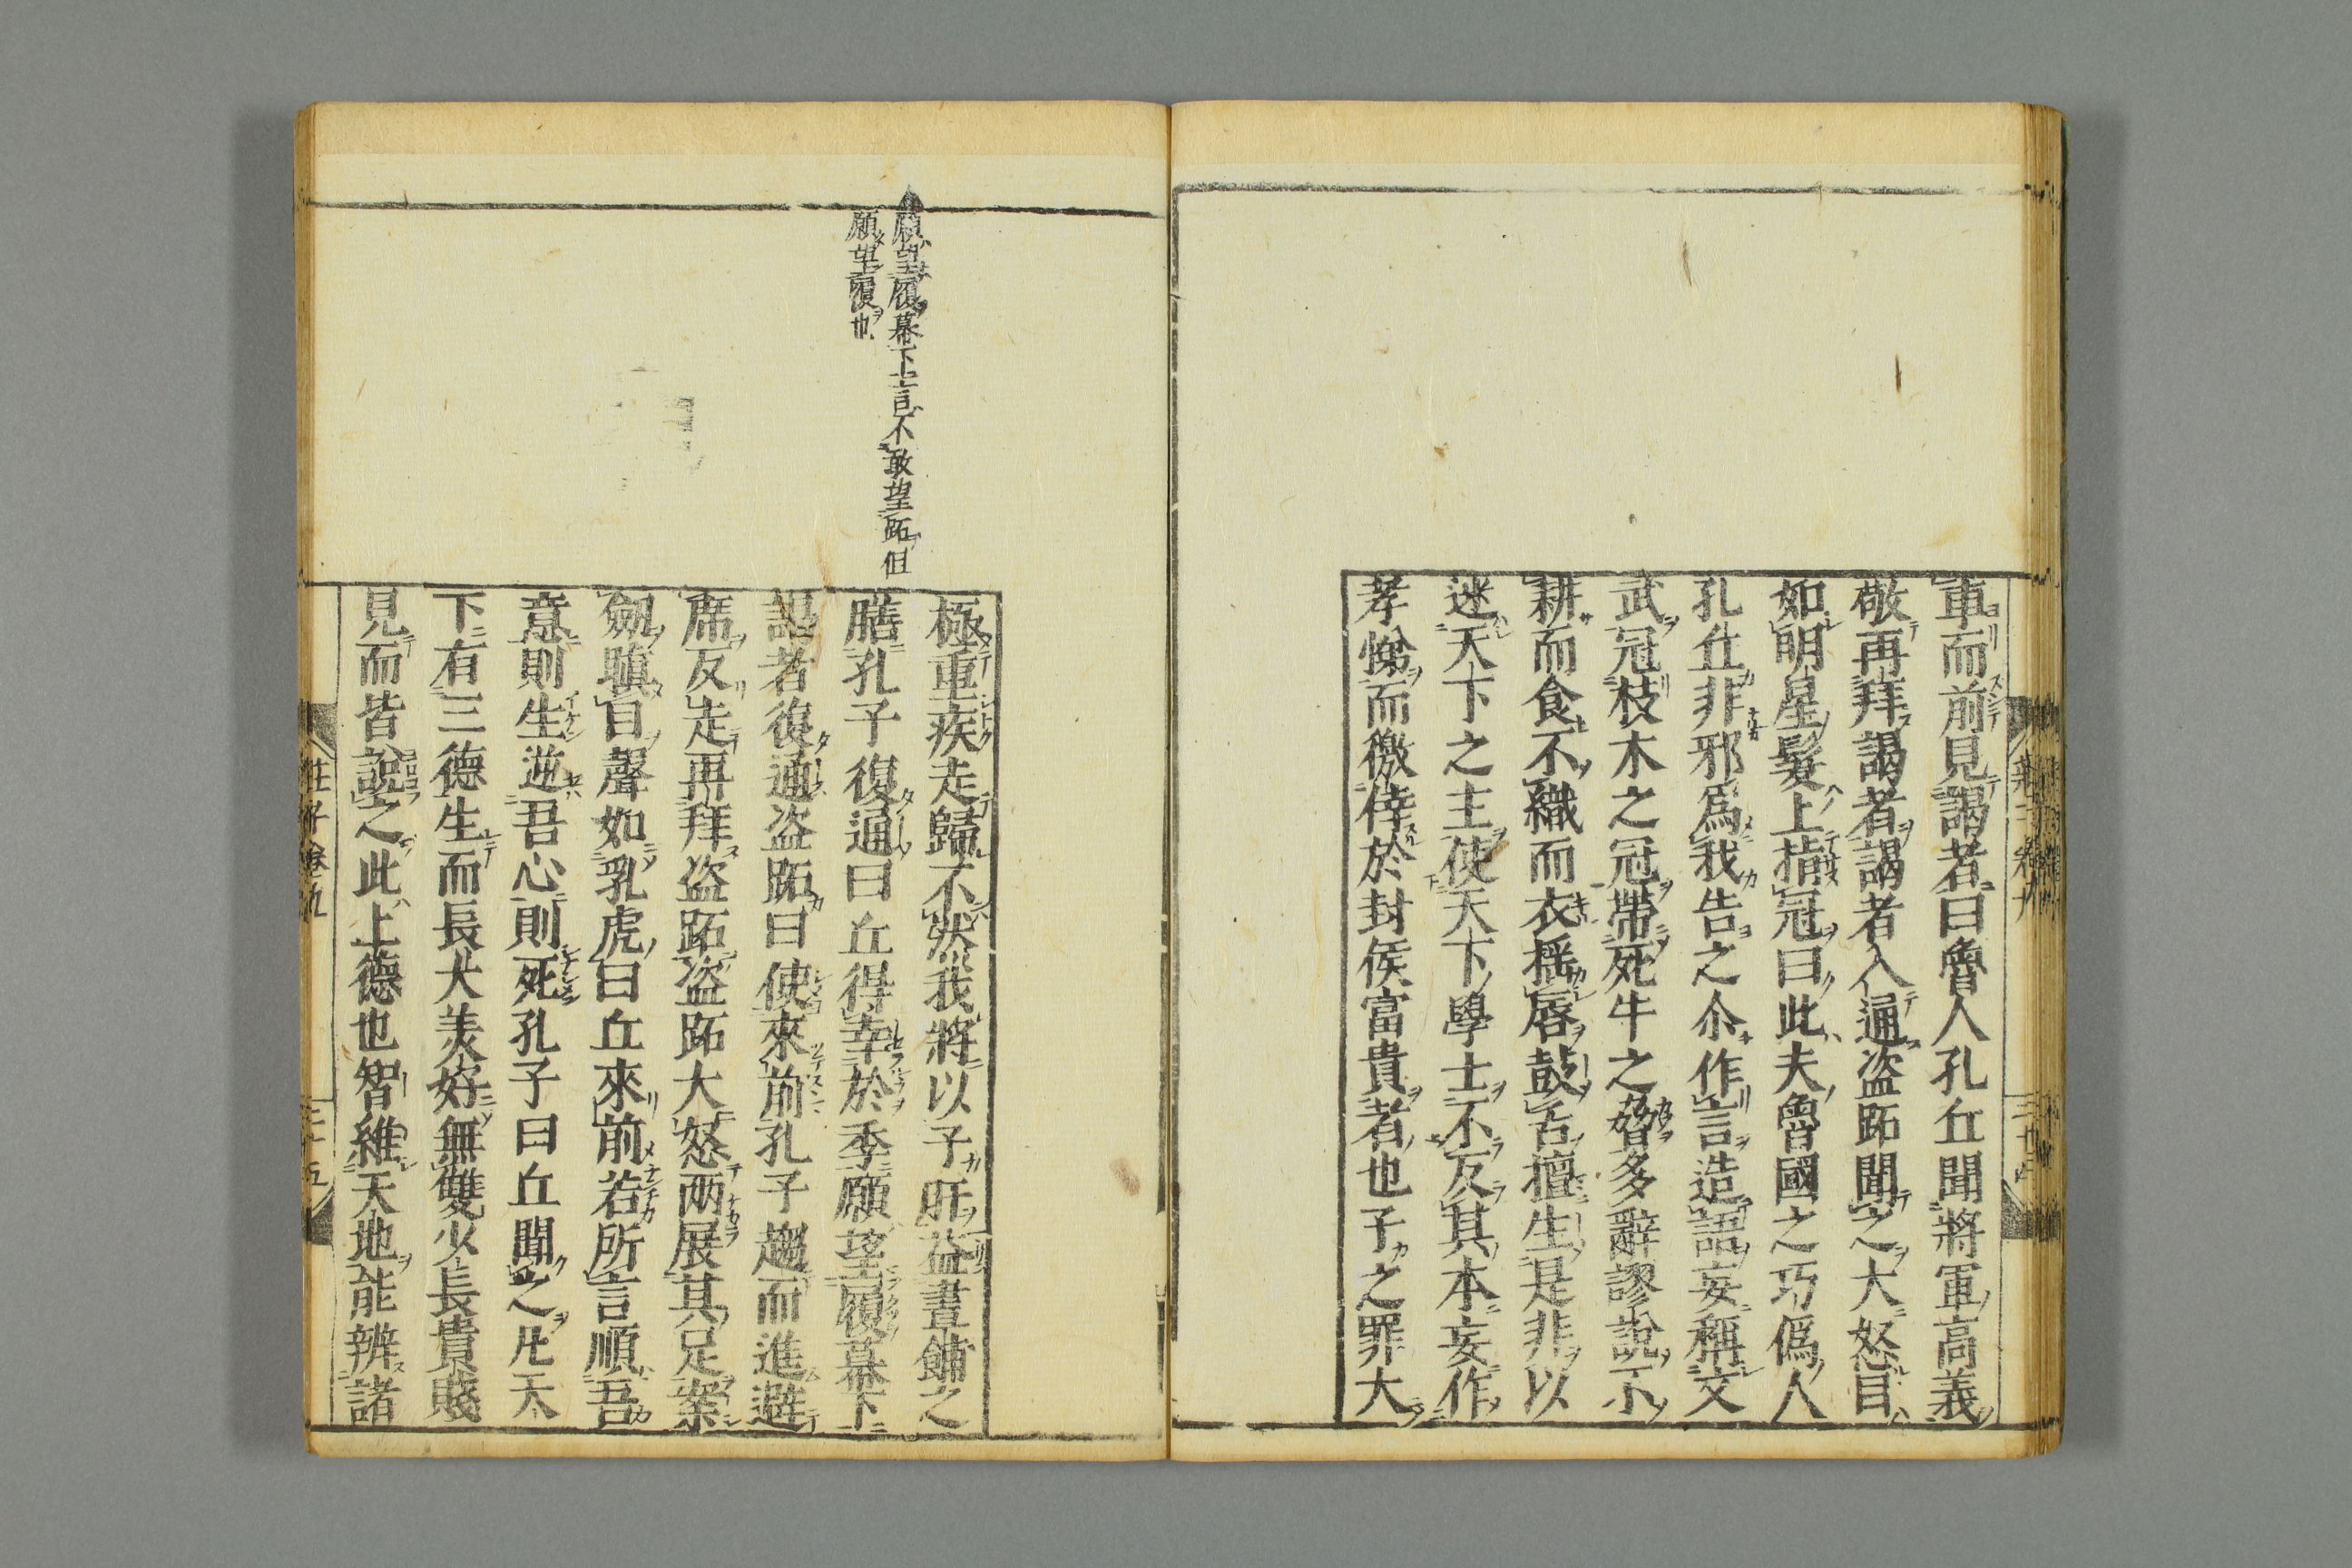 車而前見謁者曰魯人孔丘聞將軍高義
敬再拜謁者謁者入通盗跖聞之大怒目
如明星髮上指冠曰此夫魯國之巧僞人
孔丘非邪爲我告之尒作言造語妄稱文
武冠枝木之冠帶死牛之脅多辭謬說不
耕而食不織而衣搖唇鼓舌擅生是非以
迷天下之主使天下學士不反其本妄作
孝悌而徼倖於封侯富貴者也子之罪大
願望履幕下言不敢望跖但
願望履也
極重疾走歸不然我將以子肝益晝餔之
膳孔子復通曰丘得幸於季願望履幕下
謁者復通盗跖曰使來前孔子趨而進避
席反走再拜盗跖盗跖大怒两展其足案
劔瞋目聲如乳虎曰丘來前若所言順吾
意則生逆吾心則死孔子曰丘聞之凡天
下有三德生而長大美好無雙少長貴賤
見而皆說之此上德也智維天地能辨諸
莊子卷九